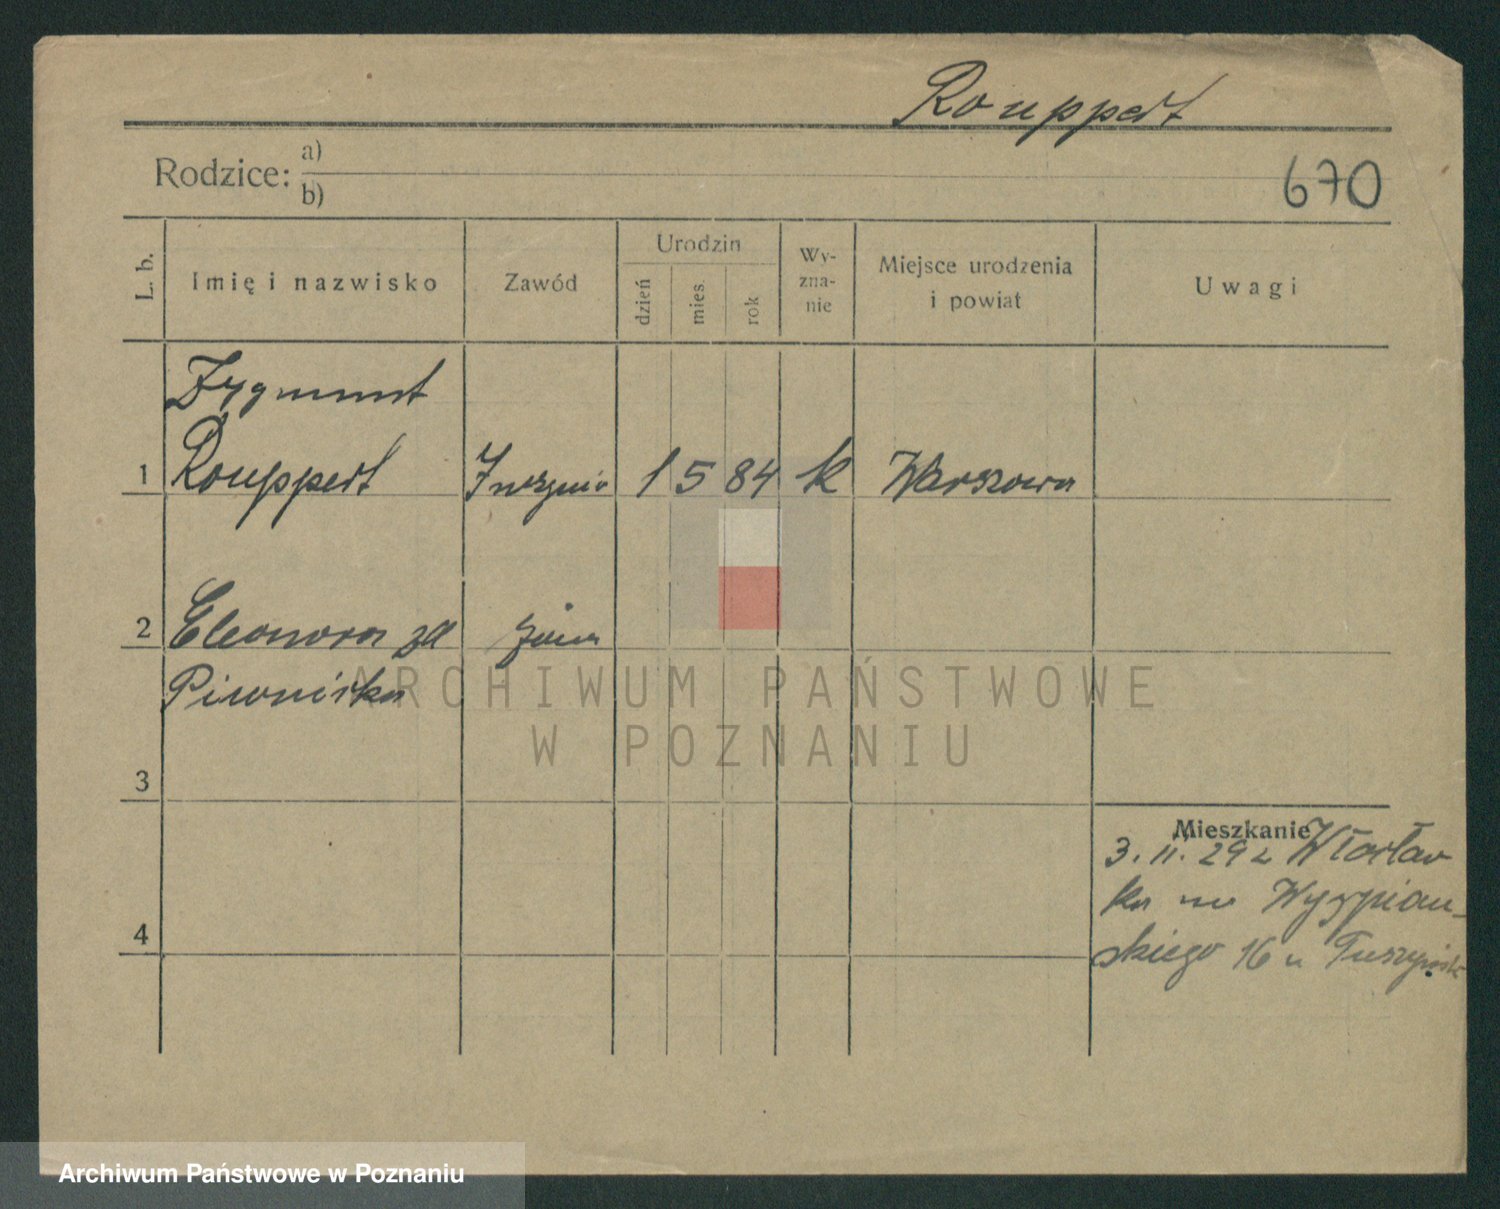 Rouppert
Rodzice: a)
b)
670
L. b.
Imię i nazwisko
Zawód
Urodzin
dzień
mies.
rok
Wy-
zna-
nie
Miejsce urodzenia
i powiat
Uwagi
Zygmunt
1 Rouppert 1 5 84 k Warszawa
2 Eleonora zd żona
Piwnicka
3
4
Mieszkanie
3. II. 29 z Włocław
ka na Wyspiań-
skiego 16 u
ARCHIWUM PAŃSTWOWE
W POZNANIU
Archiwum Państwowe w Poznaniu